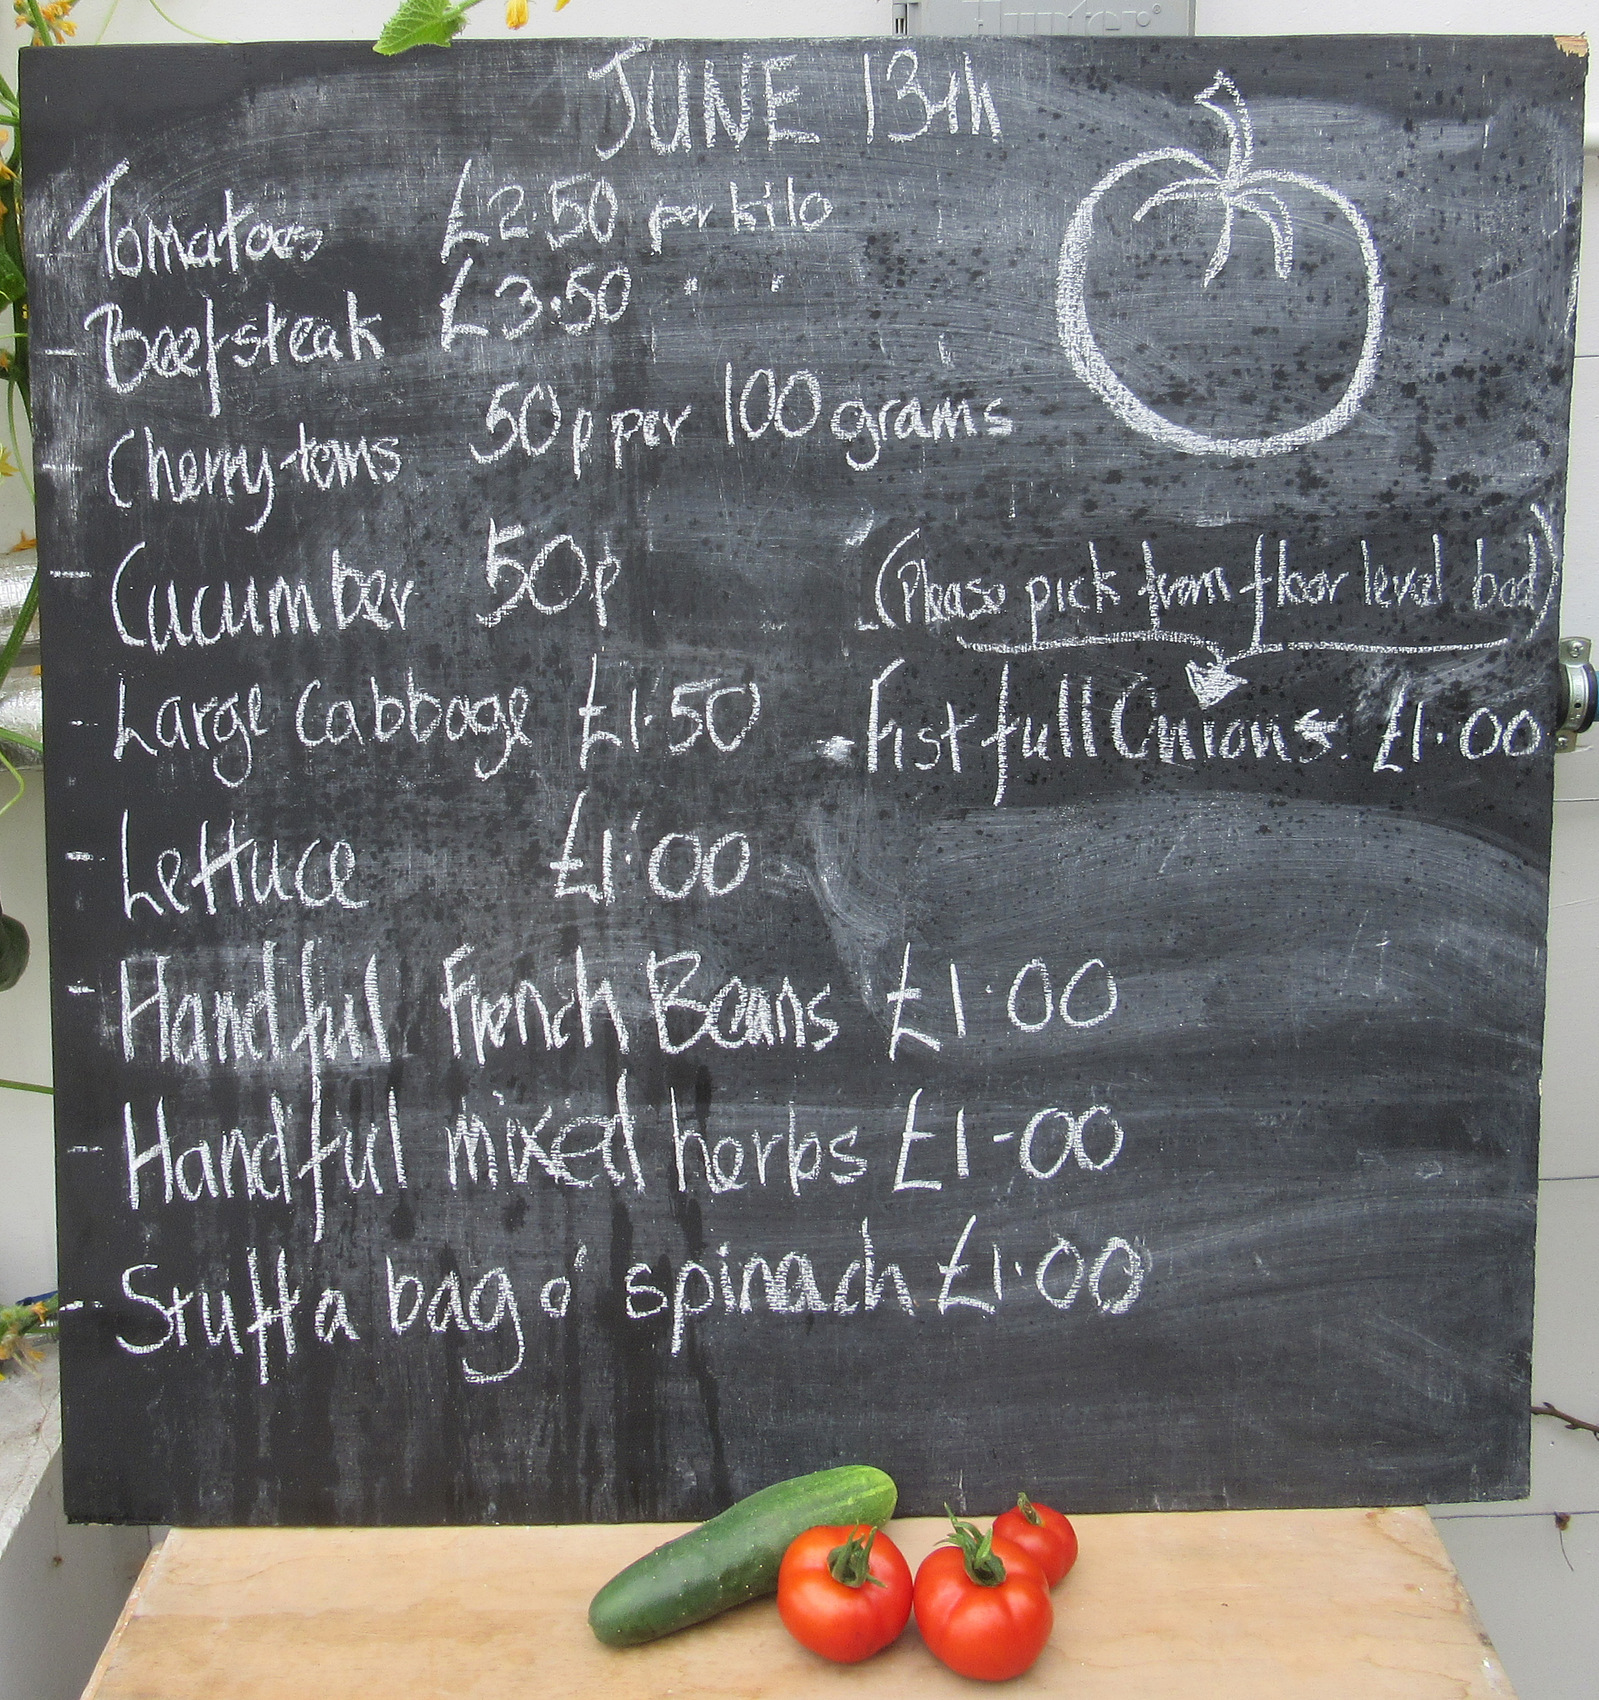 Hunter®
JUNE 13th
- Tomatoes £2.50 per kilo
- Beefsteak £3.50 " "
- Cherry toms 50p per 100 grams
- Cucumber 50p
(Please pick from floor level bed)
- Large Cabbage £1.50
- Fist full Onions. £1.00
- Lettuce £1.00
- Handful French Beans £1.00
- Handful mixed herbs £1-00
- Stuff a bag o' spinach £1.00